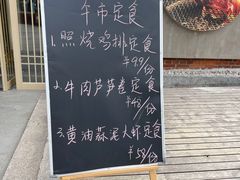 午市定食
1.照烧鸡排定食
¥49/份
2.牛肉芦笋卷定食
¥48/份
3.黄油蒜泥大虾定食
¥58/份